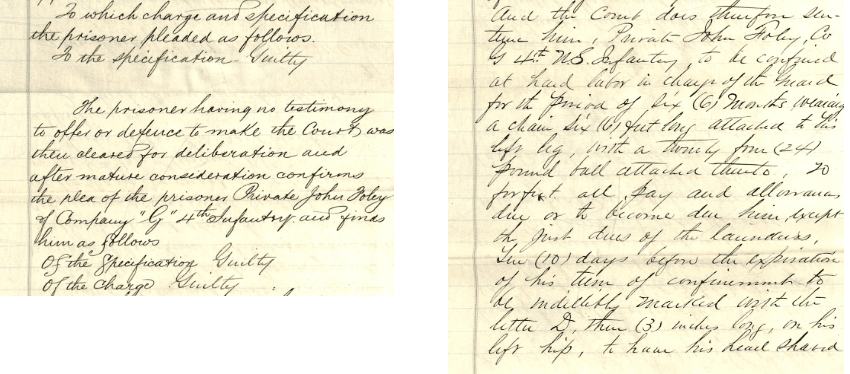 To which charge and specification
the prisoner pleaded as follows.
To the specification Guilty
The prisoner having no testimony
to offer or defence to make the Court was
then cleared for deliberation and
after mature consideration confirms
the plea of the prisoner Private John Foley
of Company "G" 4th Infantry and finds
him as follows
Of the Specification Guilty
Of the Charge Guilty.
And the Court does therefore sen-
tence him, Private John Foley, Co
G 4th U.S. Infantry, to be confined
at hard labor in charge of the Guard
for the period of six (6) Months wearing
a chain six (6) feet long attached to his
left leg, with a twenty four (24)
pound ball attached thereto, To
forfeit all pay and allowances
due or to become due him, except
the just dues of the laundress,
Ten (10) days before the expiration
of his term of confinement to
be indellibly marked with the
letter D, three (3) inches long, on his
left hip, to have his head shaved